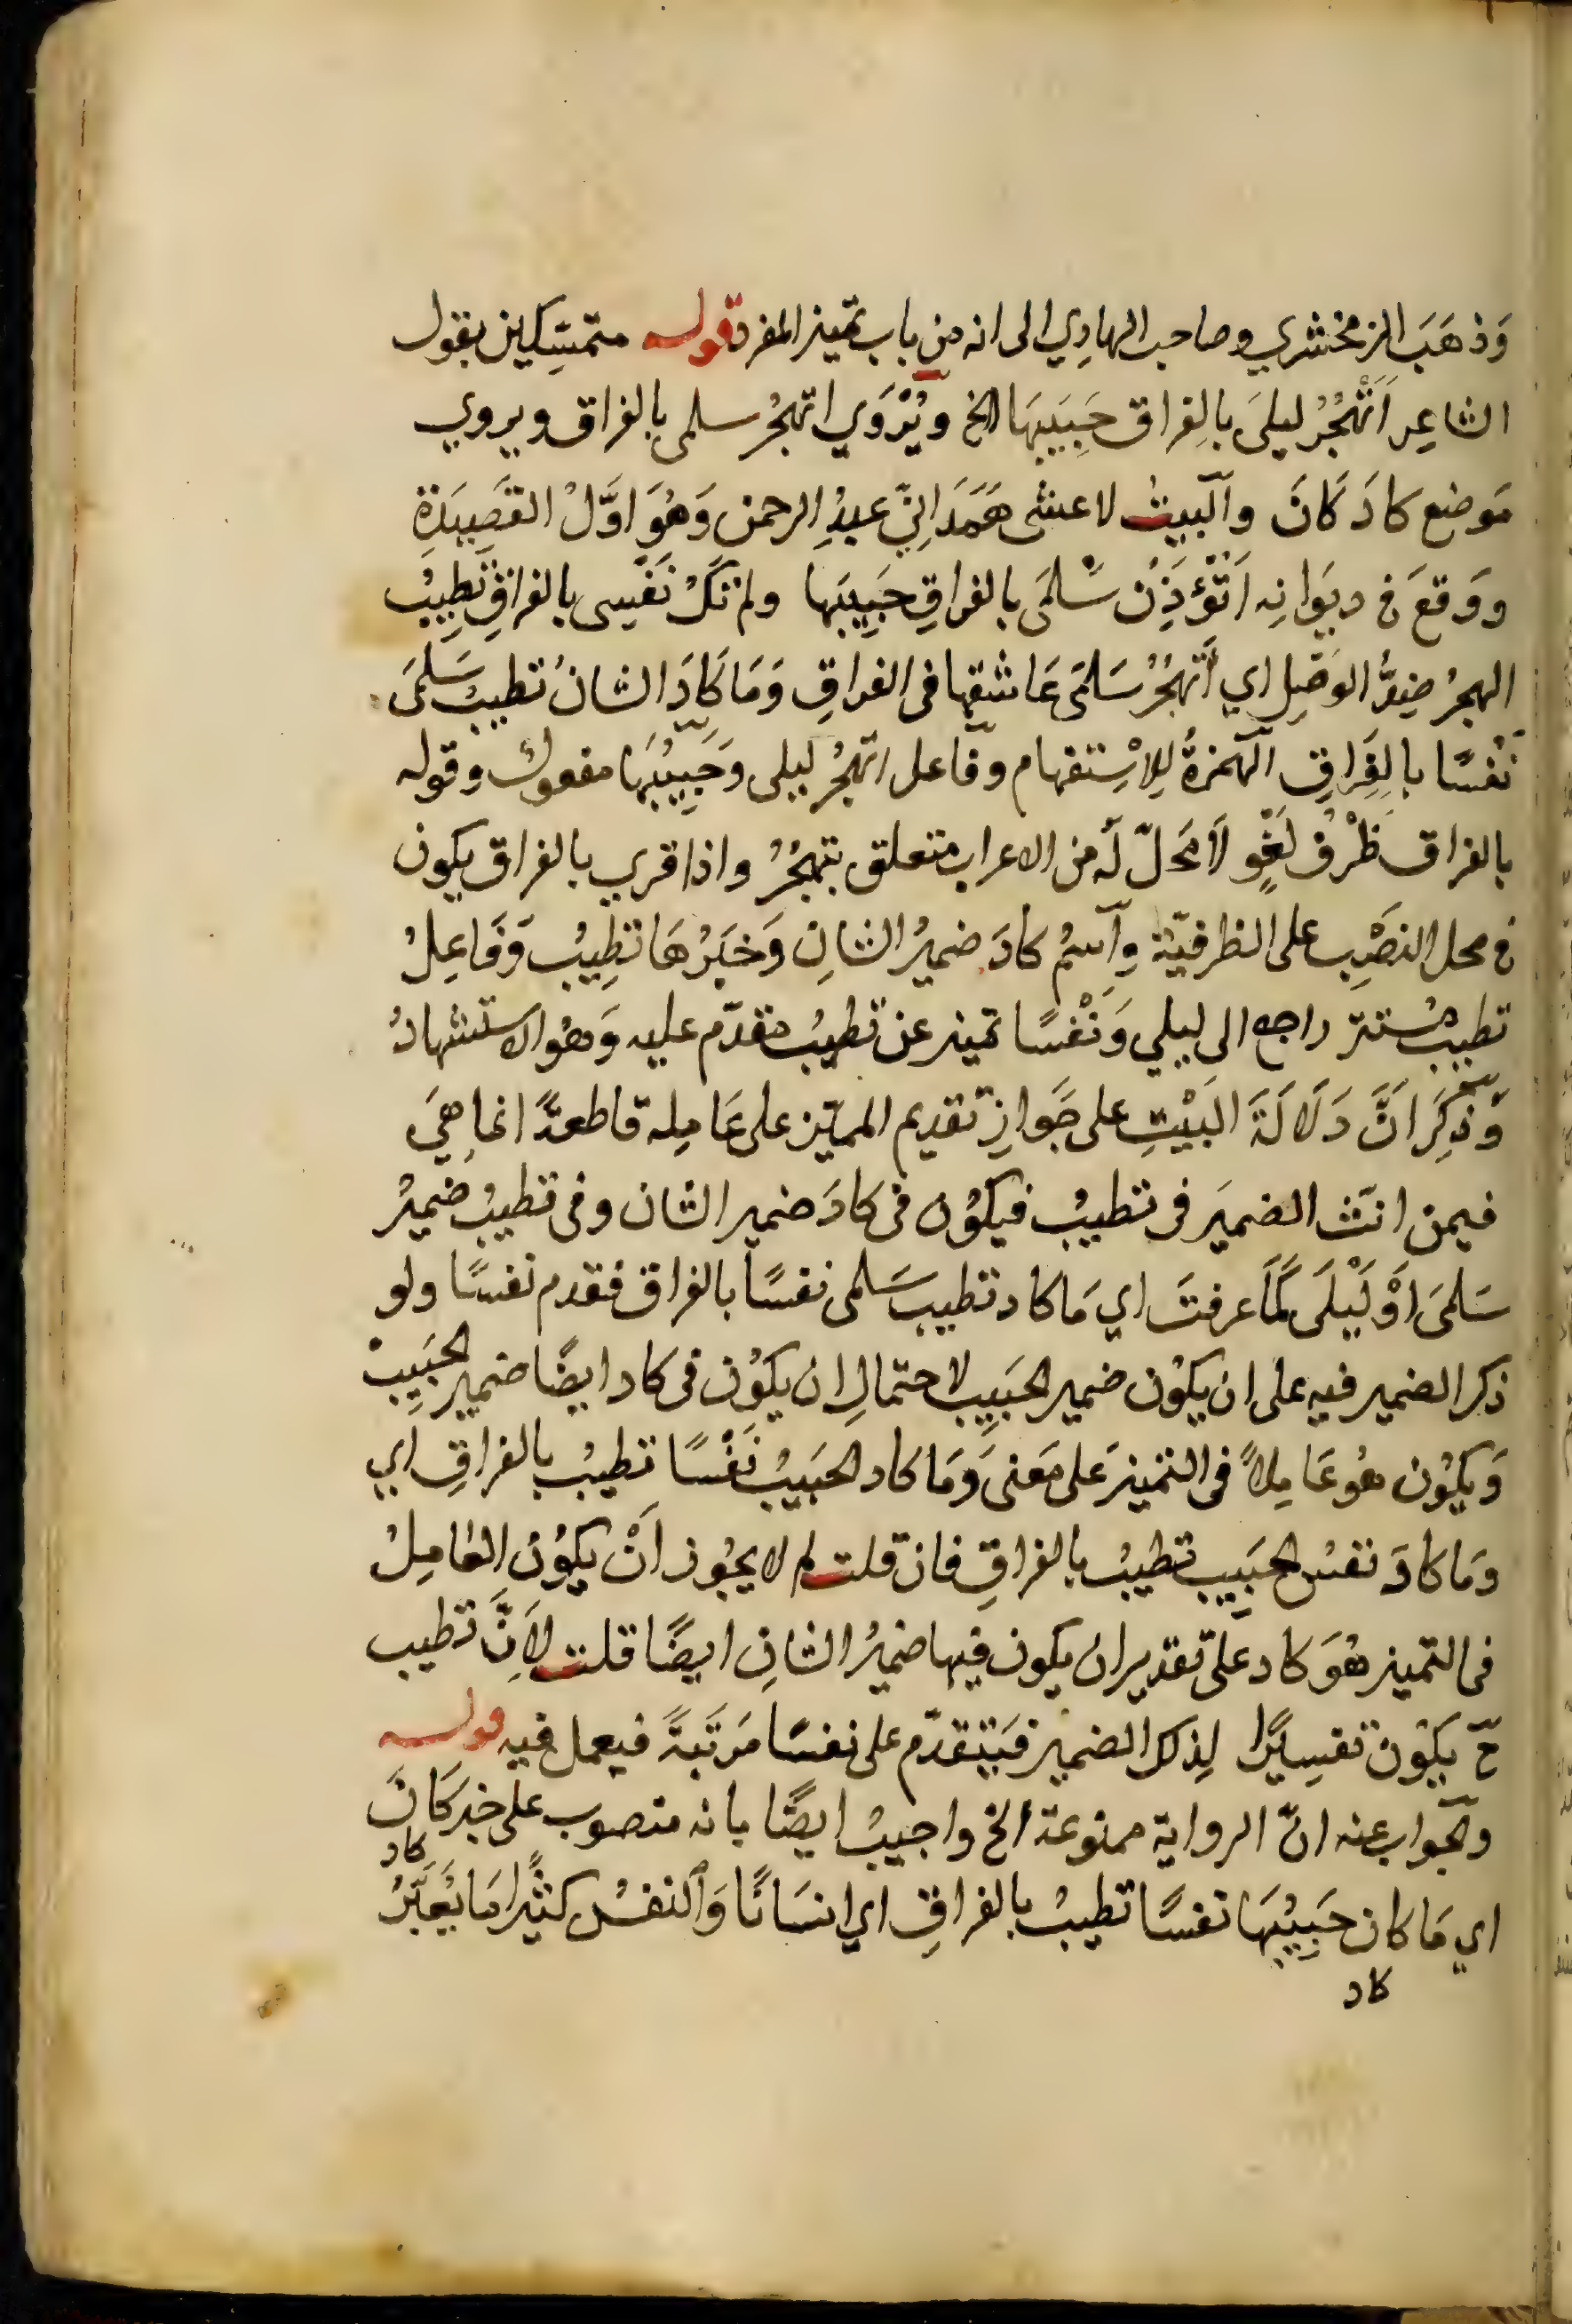 وَذهَبَ الزمخشري وصاحب الهادِي الى انه مِن باب تمييز المفرد قوله متمسِّكين بقول
الشاعِر اَتَهْجُرُ ليلىَ بالفِراق حَبِيبَهَا الخ ويُرْوَي اتهجُرُ سلمى بالفراق ويروي
مَوضع كادَ كَانَ والبيتُ لاعشى هَمَدَانِيّ عبدِ الرحمن وَهُوَ اوَّلُ القَصِيدَةِ
ووَقعَ في ديوَانِه اَتُؤْذِنُ سَلمَى بالفراقِ حَبِيبَها ولم تَكُ نَفسِى بالفراقِ تَطِيبُ
الهجرُ ضِدُّ الوَصْلِ اي أتَهجُرُ سَلمَى عَاشقها فى الفراقِ وَمَا كَادَ الشانُ تطيبُ سَلمَى
نَفْسًا بالفِرَاقِ الهَمْزةُ لِلاِسْتِفهام وفاعل اتهجُرُ ليلى وَحَبِيبَهَا مفعول وقوله
بالفراق ظَرْفُ لَغْوٍ لاَ مَحَلَّ لَه من الاعراب متعلق بتهجُرُ واذا قري بالفراق يكون
في محل النصْبِ على الظرفيّة وِاسْمُ كادَ ضميرُ الشانِ وَخبَرُهَا تطِيبُ وَفَاعِلُ
تطيبُ مُستتر راجع الى ليلي وَنَفْسًا تمييز عن تطيبُ متقدّم عليه وَهُوَ الاستشهادُ
وَذُكِرَ اَنَّ دَلَالَةَ البَيْتِ على جَوازِ تقديم المميّز على عَامِله قاطعةً انما هِيَ
فيمن انّث الضميرَ في تطيبُ فيكوُن فى كادَ ضمير الشان وفى تطيبُ ضميرُ
سَلمىَ اَوْ لَيْلَى كَمَا عرفتَ اي مَا كاد تطيب سَلمى نفسًا بالفراق فقدم نفسًا ولو
ذكر الضمير فيه على ان يكوُن ضمير الحَبِيب لاحتمالِ ان يكوُن فى كاد ايضًا ضمير الحَبِيبْ
وَيكوُن هُو عَامِلاً فى التمييز على مَعنى وَمَا كاد الحبَيبُ نَفْسًا تطيبُ بالفراقِ اي
وَمَا كادَ نفسُ الحَبِيب تطيبُ بالفراقِ فان قلت لم لا يجُوز اَنْ يكوُن العَامِلُ
فى التمييز هُوَ كاد عَلَى تقدير ان يكون فيها ضميرُ الشانِ ايضًا قلت لِاَنَّ تطيب
حّ يكوُن تفسِيرًا لِذلك الضمير فيَتقدّم على نفسًا مَرتَبَةً فيعمل فيه قوله
والجواب عنه انّ الرواية ممنوعة الخ واجيبُ ايضًا بانه منصوب على خبر كَانَ
كاد
اي مَا كان حَبِيبُهَا نفسًا تطيبُ بالفراقِ اي انسَانًا وَالنفسُ كثيًرا مَا يُعَبَّرُ
كاد